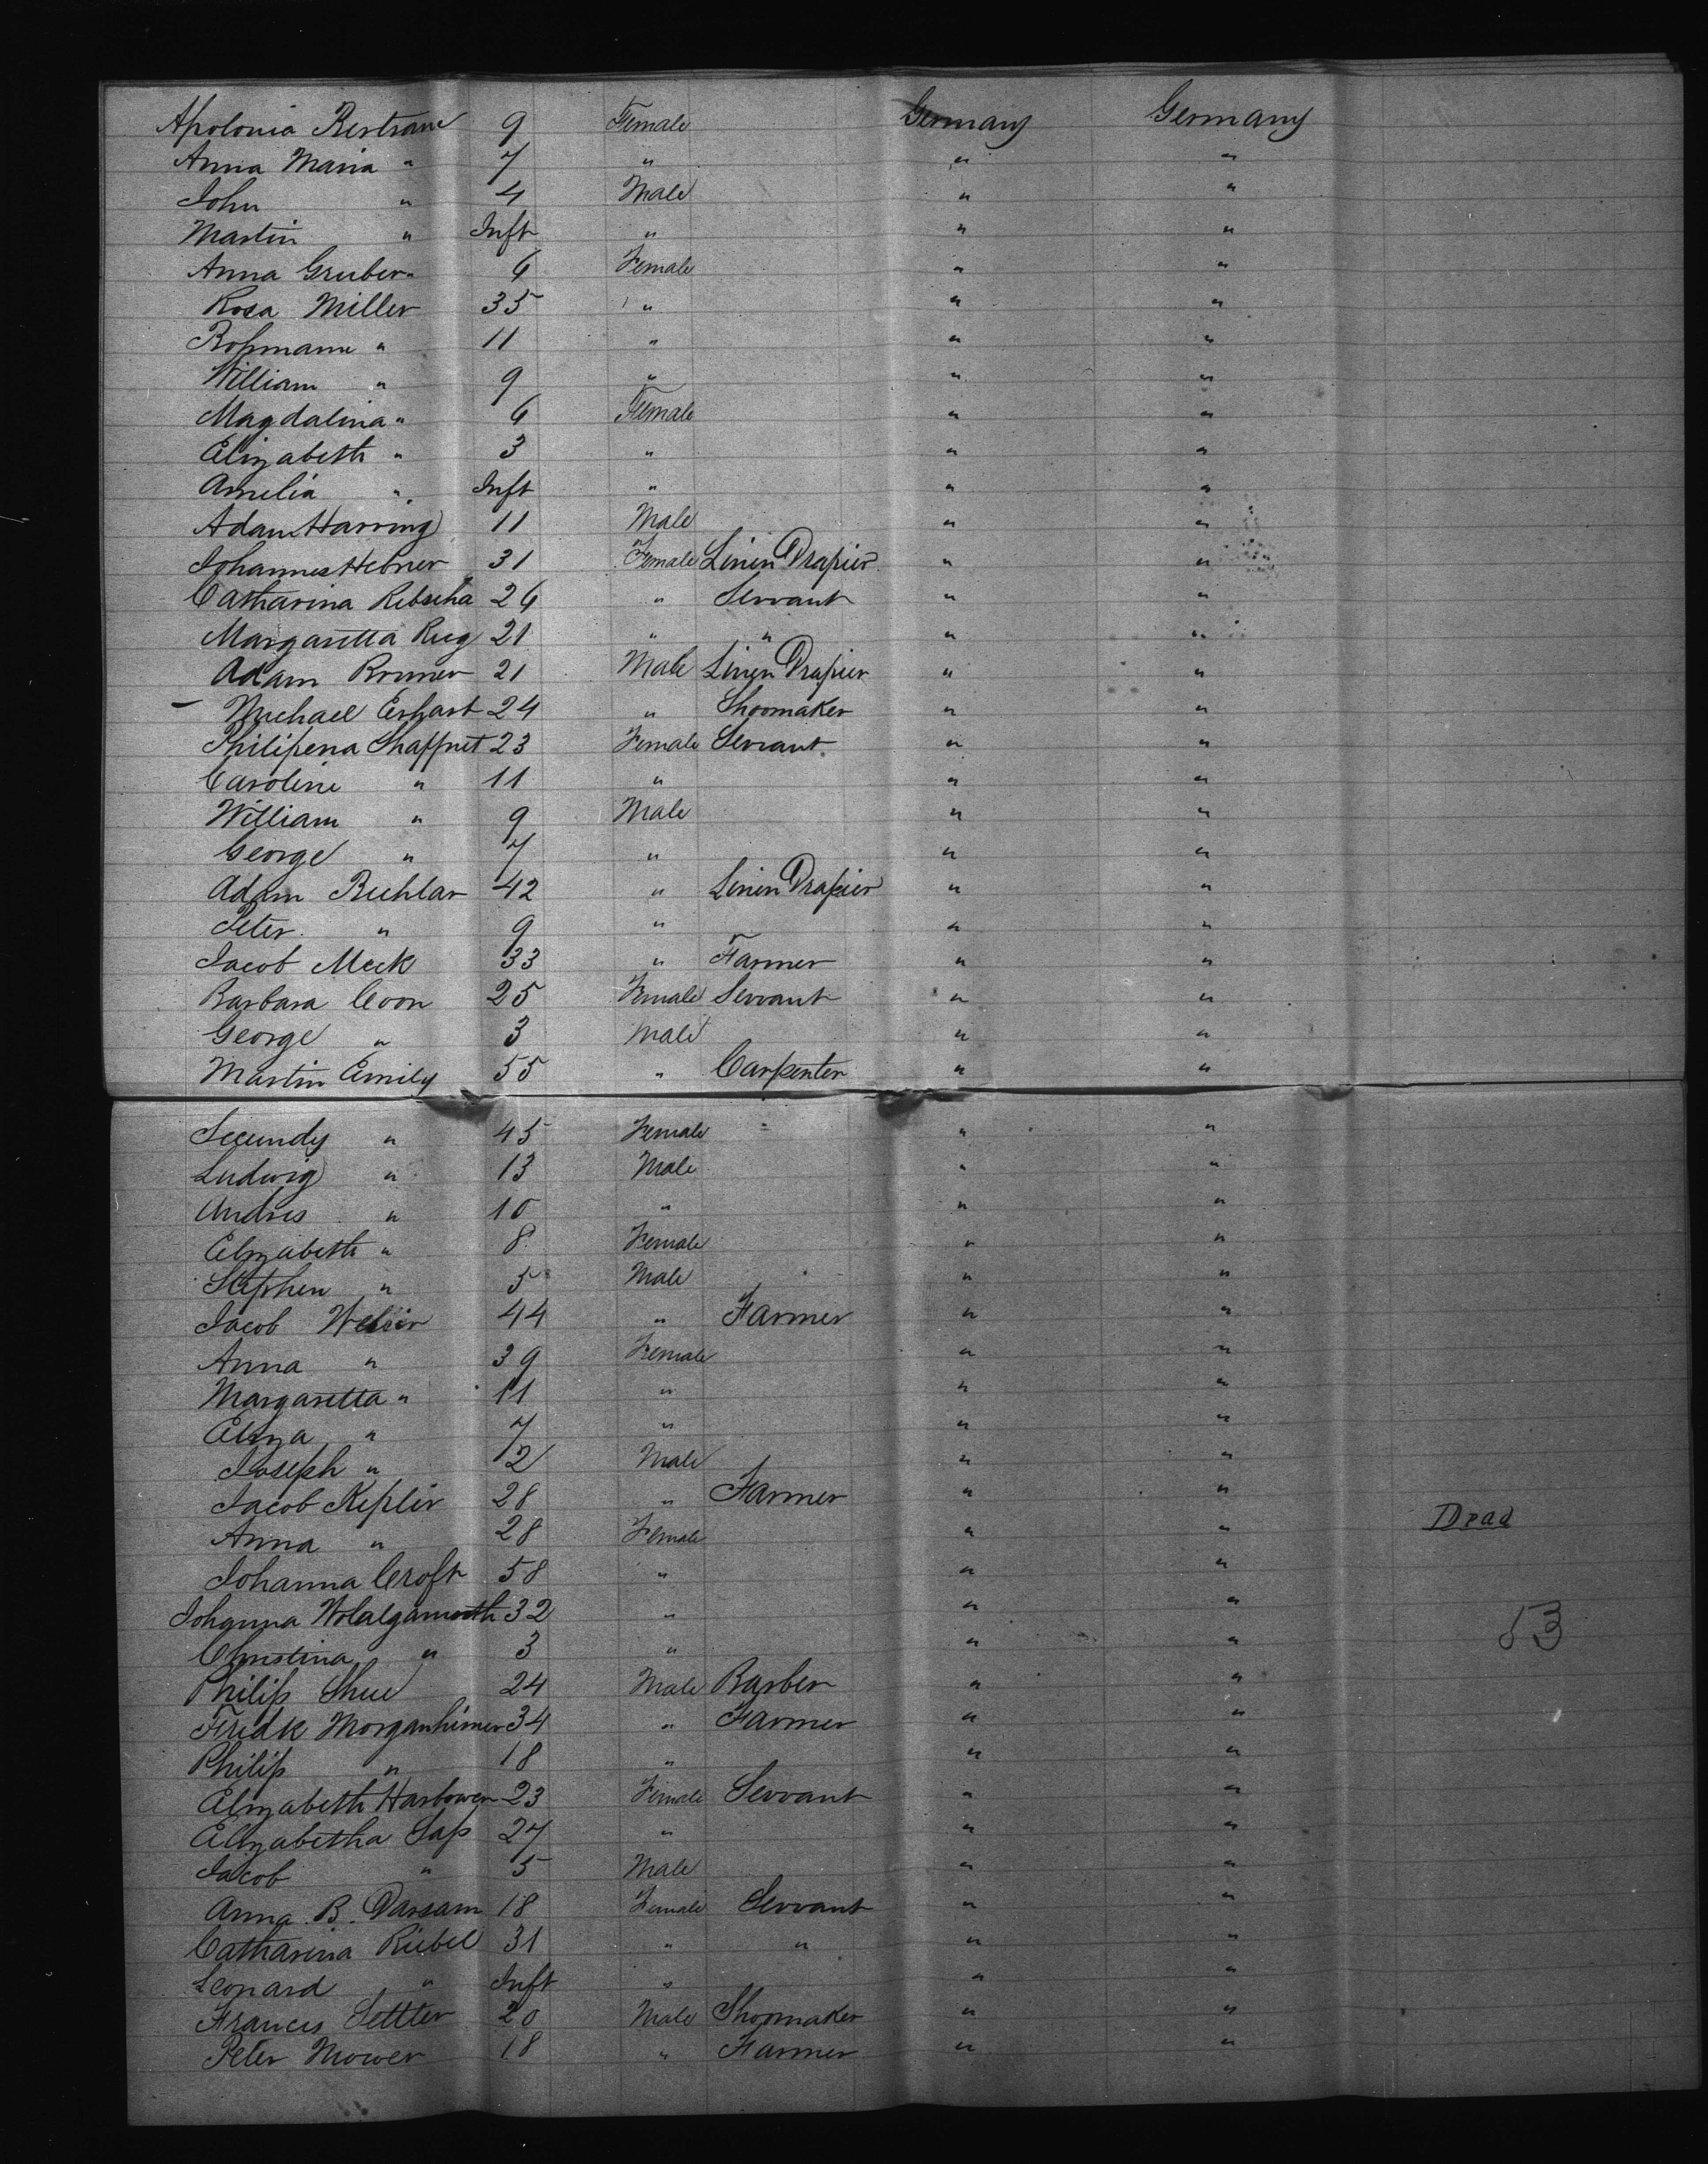 Apolonia Bertrane 9 Female Germany Germany
Anna Maria " 7 " " "
John " 4 Male " "
Martin " Inft " " "
Anna Gruber " 6 Female " "
Rosa Miller 35 " " "
Rosmann " 11 " " "
William " 9 " " "
Magdalina " 6 Female " "
Elizabeth " 3 " " "
Amelia " Inft " " "
Adam Harring 11 Male " "
Johannes Hebner 31 Female Linen Drapier " "
Catharina Ribscha 26 " Servant " "
Margaretta Rieg 21 " " " "
Adam Bruner 21 Male Linen Drapier " "
Michael Erhart 24 " Shoomaker " "
Philipena Shaffnit 23 Female Servant " "
Caroline " 11 " " "
William " 9 Male " "
George " 7 " " "
Adam Buhlar 42 " Linen Drapier " "
Peter " 9 " " "
Jacob Meek 33 " Farmer " "
Barbara Coon 25 Female Servant " "
George " 3 Male " "
Martin Emily 55 " Carpenter " "
Secundy " 45 Female " "
Ludwig " 13 Male " "
Andres " 10 " " "
Elizabeth " 8 Female " "
Stephen " 5 Male " "
Jacob 44 " Farmer " "
Anna " 39 Female " "
Margaretta " 11 " " "
Eliza " 7 " " "
Joseph " 2 Male " "
Jacob Kiplir 28 " Farmer " "
Anna " 28 Female " " Dead
Johanna Croft 58 " " "
Johanna 32 " " "
53
Christina " 3 " " "
Philip Shue 24 Male Barber " "
Fredk Morganhimer 34 " Farmer " "
Philip " 18 " " "
Elizabeth Harbower 23 Female Servant " "
Elizabetha Sap 27 " " "
Jacob " 5 Male " "
Anna B. Darsam 18 Female Servant " "
Catharina Riebel 31 " " " "
Leonard " Inft " " "
Frances Settler 20 Male Shoomaker " "
Peter Mower 18 " Farmer " "